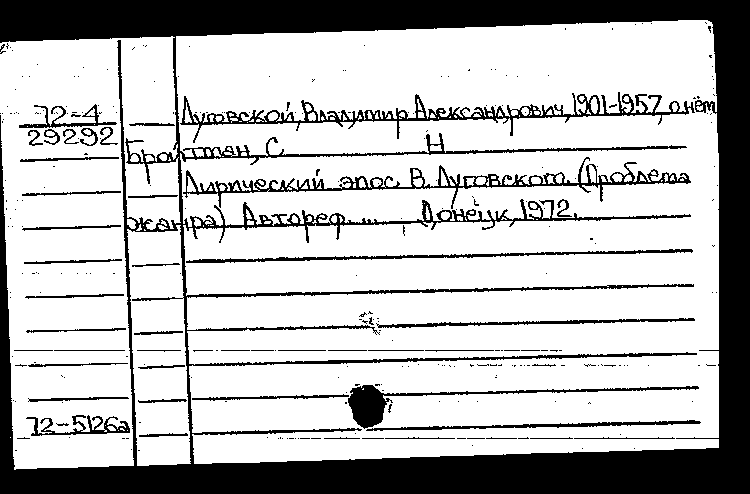 72-4 Луговской, Владимир Александрович, 1901-1957, о нём
29292
Бройтман, С Н
Лирический эпос В. Луговского. (Проблема
жанра) Автореф. ... Донецк, 1972.
72-5126а